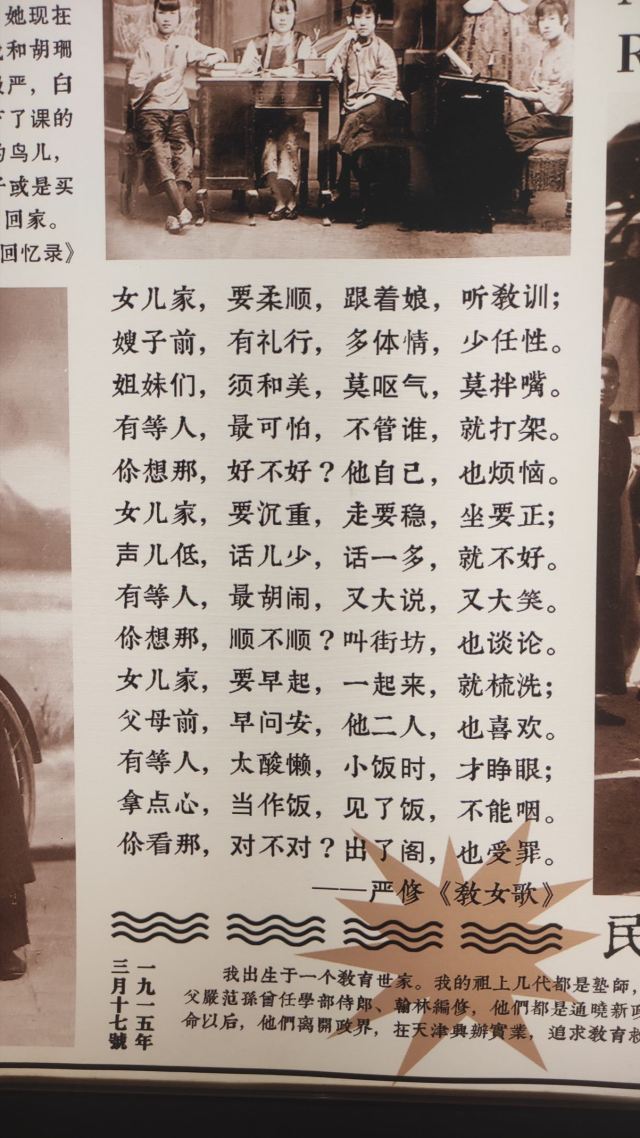 她现在
和胡珊
严，白
下了课的
的鸟儿，
子或是买
回家。
回忆录》
女儿家，要柔顺，跟着娘，听教训；
嫂子前，有礼行，多体情，少任性。
姐妹们，须和美，莫呕气，莫拌嘴。
有等人，最可怕，不管谁，就打架。
你想那，好不好？他自己，也烦恼。
女儿家，要沉重，走要稳，坐要正；
声儿低，话儿少，话一多，就不好。
有等人，最胡闹，又大说，又大笑。
你想那，顺不顺？叫街坊，也谈论。
女儿家，要早起，一起来，就梳洗；
父母前，早问安，他二人，也喜欢。
有等人，太酸懒，小饭时，才睁眼；
拿点心，当作饭，见了饭，不能咽。
你看那，对不对？出了阁，也受罪。
——严修《教女歌》
一九一五年
三月十七號
我出生于一个教育世家。我的祖上几代都是塾師，
父嚴范孫曾任學部侍郎、翰林編修，他們都是通曉新政
命以后，他們离開政界，在天津興辦實業，追求教育救
民
R